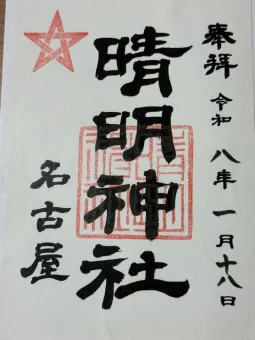 奉拝 令和八年一月十八日
晴明神社
名古屋